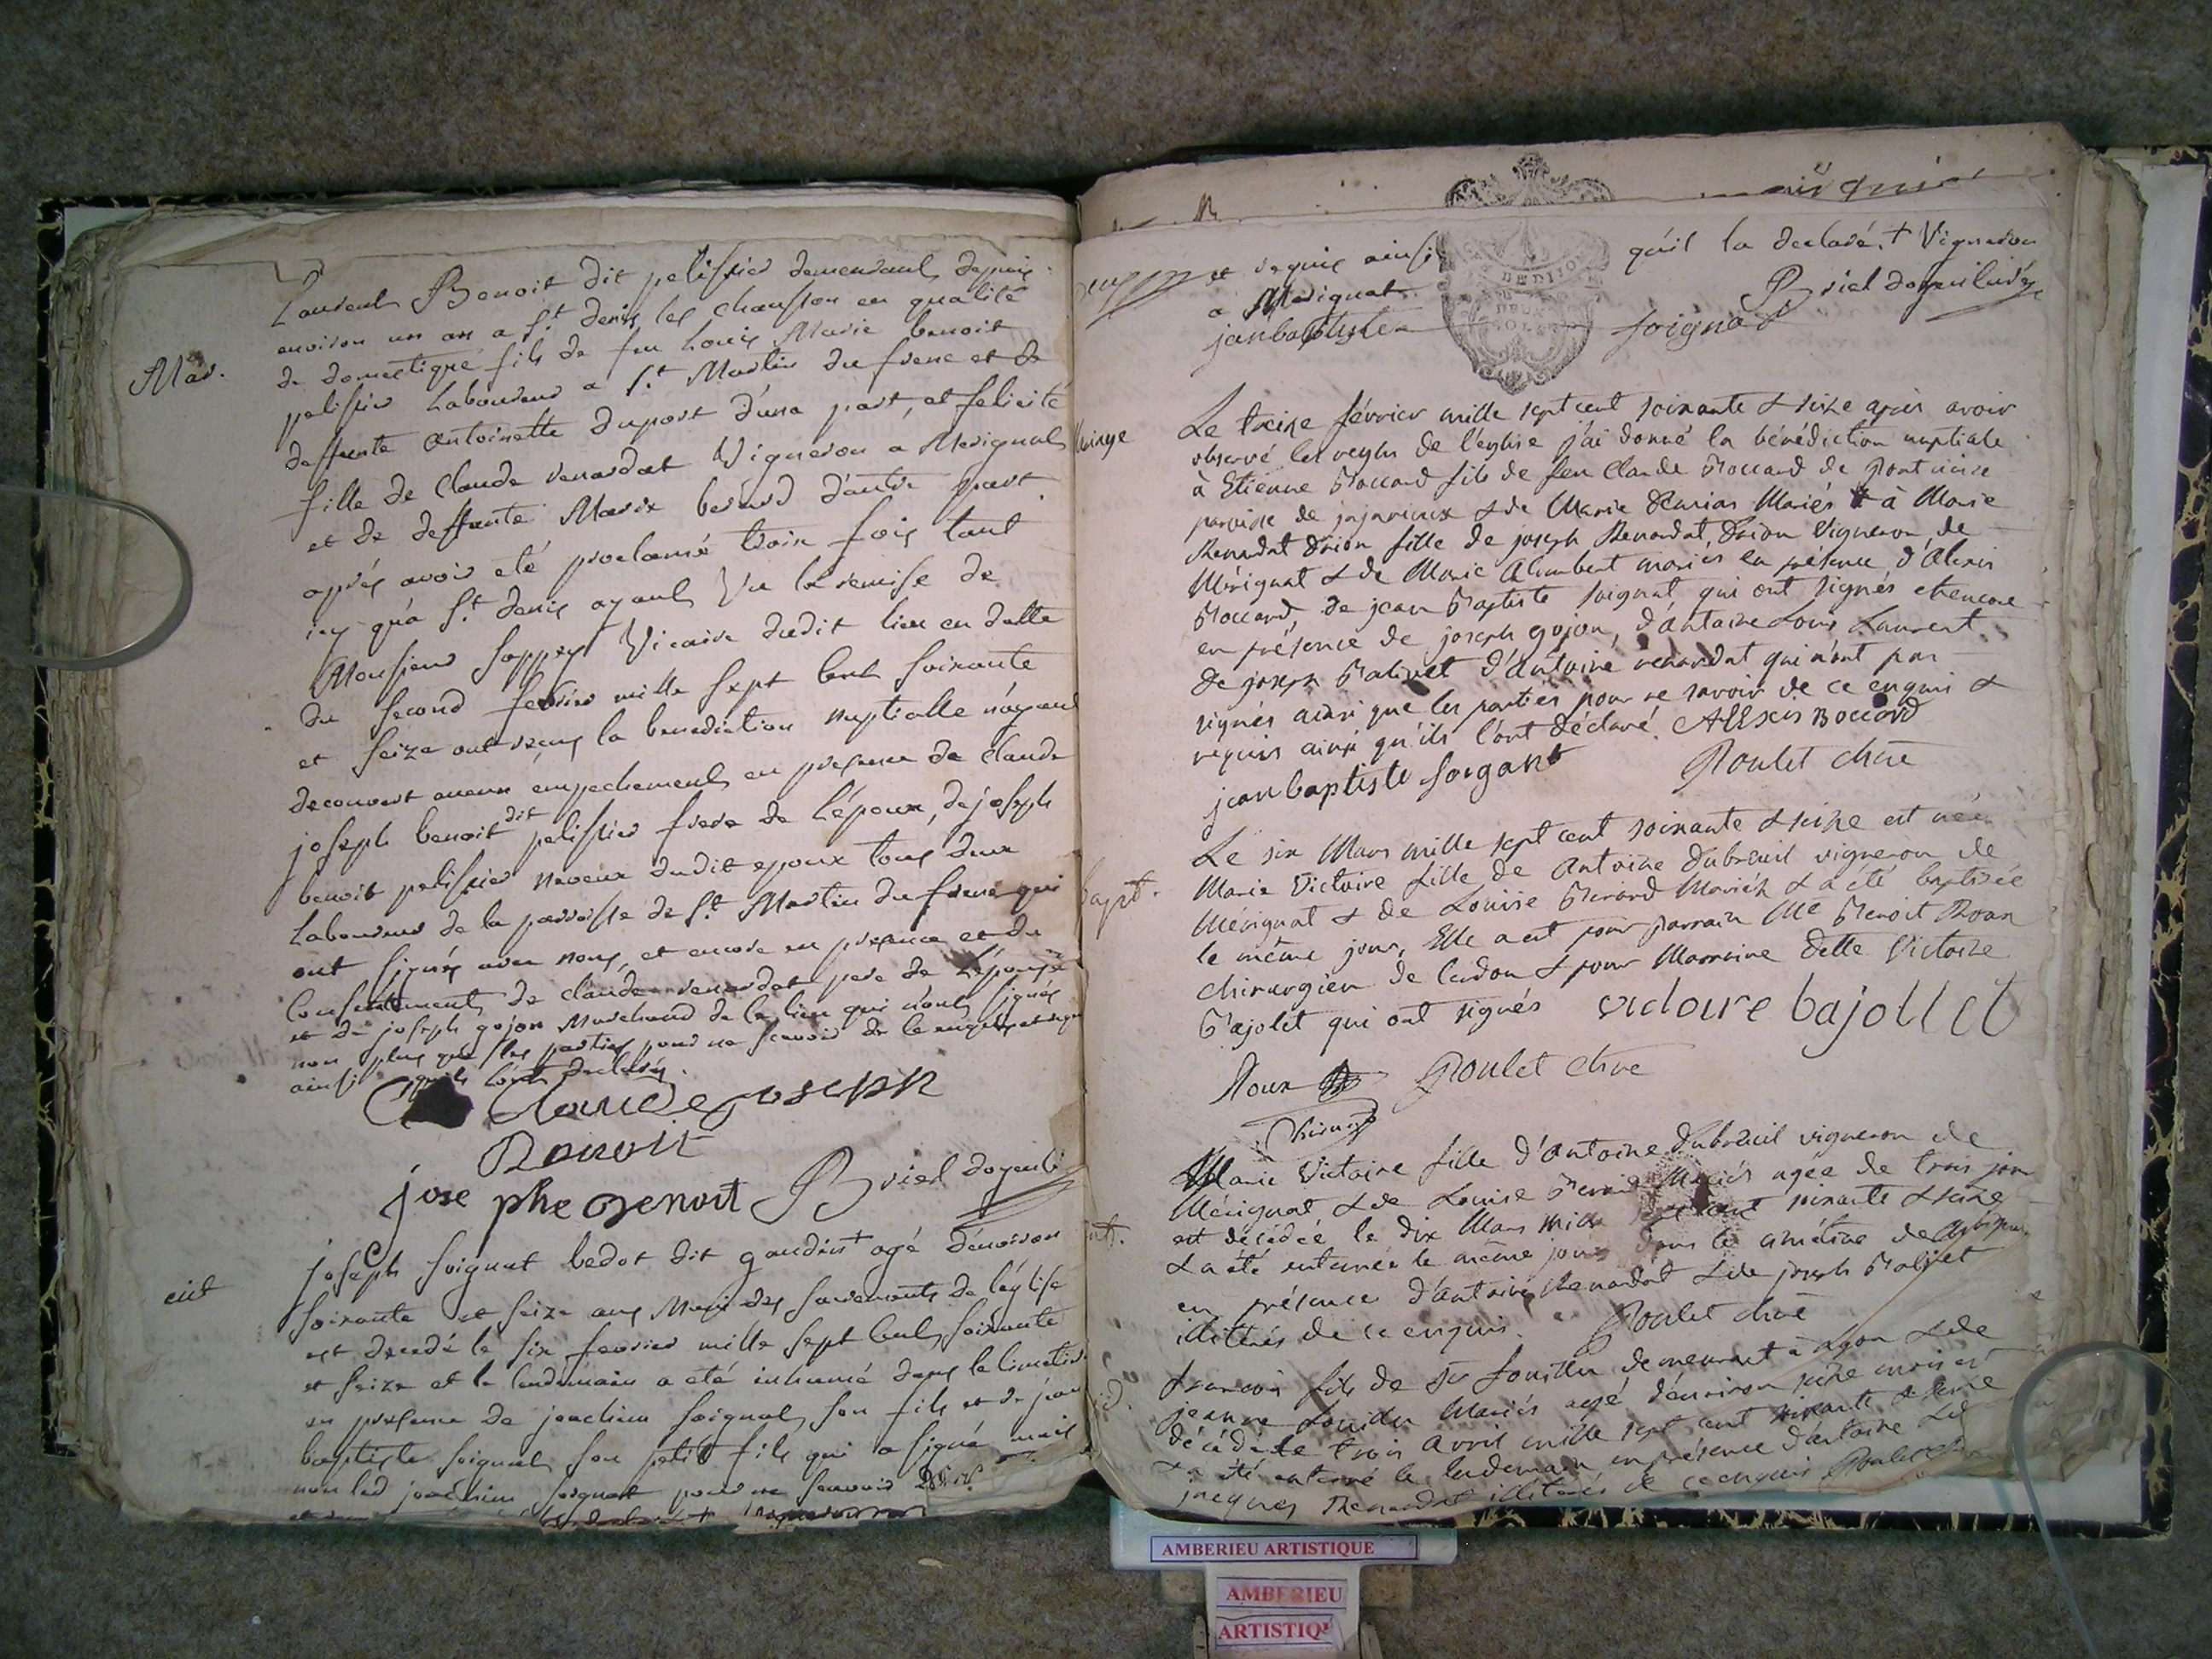 Mar.
Laurent Benoit dit pelissier demeurant depuis
environ un an a St. denis les chausson en qualité
de domestique fils de feu Louis Marie benoit
pelissier Laboureur a St. Martin du frene et de
deffunte antoinette duport d'une part, et felicité
fille de Claude renardat Vigneron a Merignat
et de deffunte Marie berard d'autre part
aprés avoir eté proclamé trois fois tant
icy qu'a St. denis ayant Vu la remise de
Monsieur Vicaire dudit lieu en datte
du second fevrier mille sept cent soixante
et seize ont reçus la benediction nuptialle n'ayant
decouvert aucun empechement en presence de claude
joseph benoit dit pelissier frere de l'époux, de joseph
benoit pelissier neveux dudit epoux tous deux
Laboureurs de la parroisse de St. Martin du frene qui
ont signés avec nous, et encore en presence et du
consentement de claude renardat pere de l'épouse
et de joseph gojon Marchand de ce lieu qui n'ont signés
non plus que les parties pour ne scavoir de ce enquis et requis
ainsi qu'ils l'ont declarés.
Claude joseph
Benoit
jose phe Benoit Briel
joseph soignat bedot dit gaudin + agé d'environ
soixante et seize ans Muni des sacrements de l'église
est decedé le six fevrier mille sept cent soixante
et seize et le lendemain a été inhumé dans le cimetiere
en presence de joachim soignat son fils et de jean
baptiste soignat son petit fils qui a signé mais
non led joachim soignat pour ne scavoir
et requis ainsi
qu'il la declaré. + Vigneron
a Merignat
Briel
jan baptiste soignat
Mariage
Le treize février mille sept cent soixante & seize après avoir
observé les regles de l'église j'ai donné la bénédiction nuptiale
à Etienne Boccard fils de feu Claude Boccard de
paroisse de jujurieux & de Marie Mariés & à Marie
Renardat Drion fille de joseph Renardat Drion Vigneron de
Mérignat & de Marie Alombert mariés en présence d'Alexis
Boccard, de jean Baptiste soignat qui ont signés et encore
en présence de joseph gojon, d'antoine Louis Laurent
de joseph Balivet d'antoine renardat qui n'ont pas
signés ainsi que les parties pour ne savoir de ce enquis &
requis ainsi qu'ils l'ont déclaré. Alexis Boccard
jean baptiste soignat Poulet
bapt.
Le six Mars mille sept cent soixante & seize est née
Marie Victoire fille de Antoine Dubreuil vigneron de
Mérignat & de Louise Berard Mariés & a été baptisée
le même jour, Elle a eut pour parrain Me Benoit Roux
chirurgien de Cerdon & pour Marraine Delle Victoire
Bajolet qui ont signés victoire bajollet
Roux Poulet
Marie Victoire fille d'Antoine Dubreuil vigneron de
Mérignat & de Louise Berard Mariés agée de trois jour
est décédée le dix Mars mille sept cent soixante & seize
& a été enterrée le même jour dans le cimetiere de
en présence d'Antoine Renardat & de joseph Balivet
illiterés de ce enquis. Poulet
francois fils de demeurant à Lyon & de
jeanne Mariés agé d'environ seize mois est
décédé le trois avril mille sept cent soixante & seize
& a été enterré le lendemain en présence d'antoine &
jacques Renardat illiterés de ce enquis Poulet
AMBERIEU ARTISTIQUE
AMBERIEU
ARTISTIQ